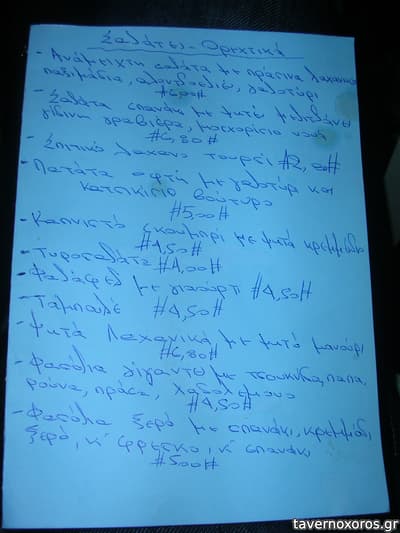 Σαλάτες - Ορεχτικά
- Ανάμειχτη σαλάτα με πράσινα λαχανικά
παξιμάδια, γαλοτύρι
#6,00#
- Σαλάτα σπανάκι με ψητέ μελιτζάνες
γίδινη γραβιέρα,
#6,80#
- Σπιτικό λάχανο τουρσί #2,00#
- Πατάτα οφτή με γαλοτύρι και
κατσικίσιο βούτυρο
#5,00#
- Καπνιστό σκουμπρί με ψητά κρεμμύδια
#4,50#
- Τυροσαλάτα #4,00#
- Φαλάφελ με γιαούρτι #4,50#
- Ταμπουλέ #4,50#
- Ψητά λαχανικά με ψητό μανούρι
#6,80#
- Φασόλια γίγαντες με τσουκνίδα, παπα
ρούνα, πράσα,
#4,50#
- Φασόλια ξερό με σπανάκι, κρεμμύδι
ξερό, κ' φρέσκο, κ' σπανάκι
#5,00#
tavernoxoros.gr